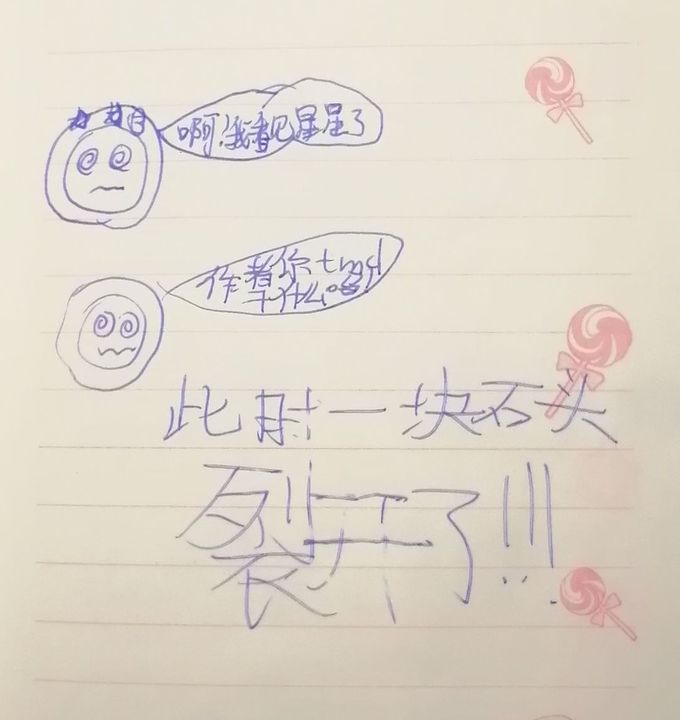 啊!我看见星星了
作者你tmgd
干什么。
此时一块石头
裂开了!!!